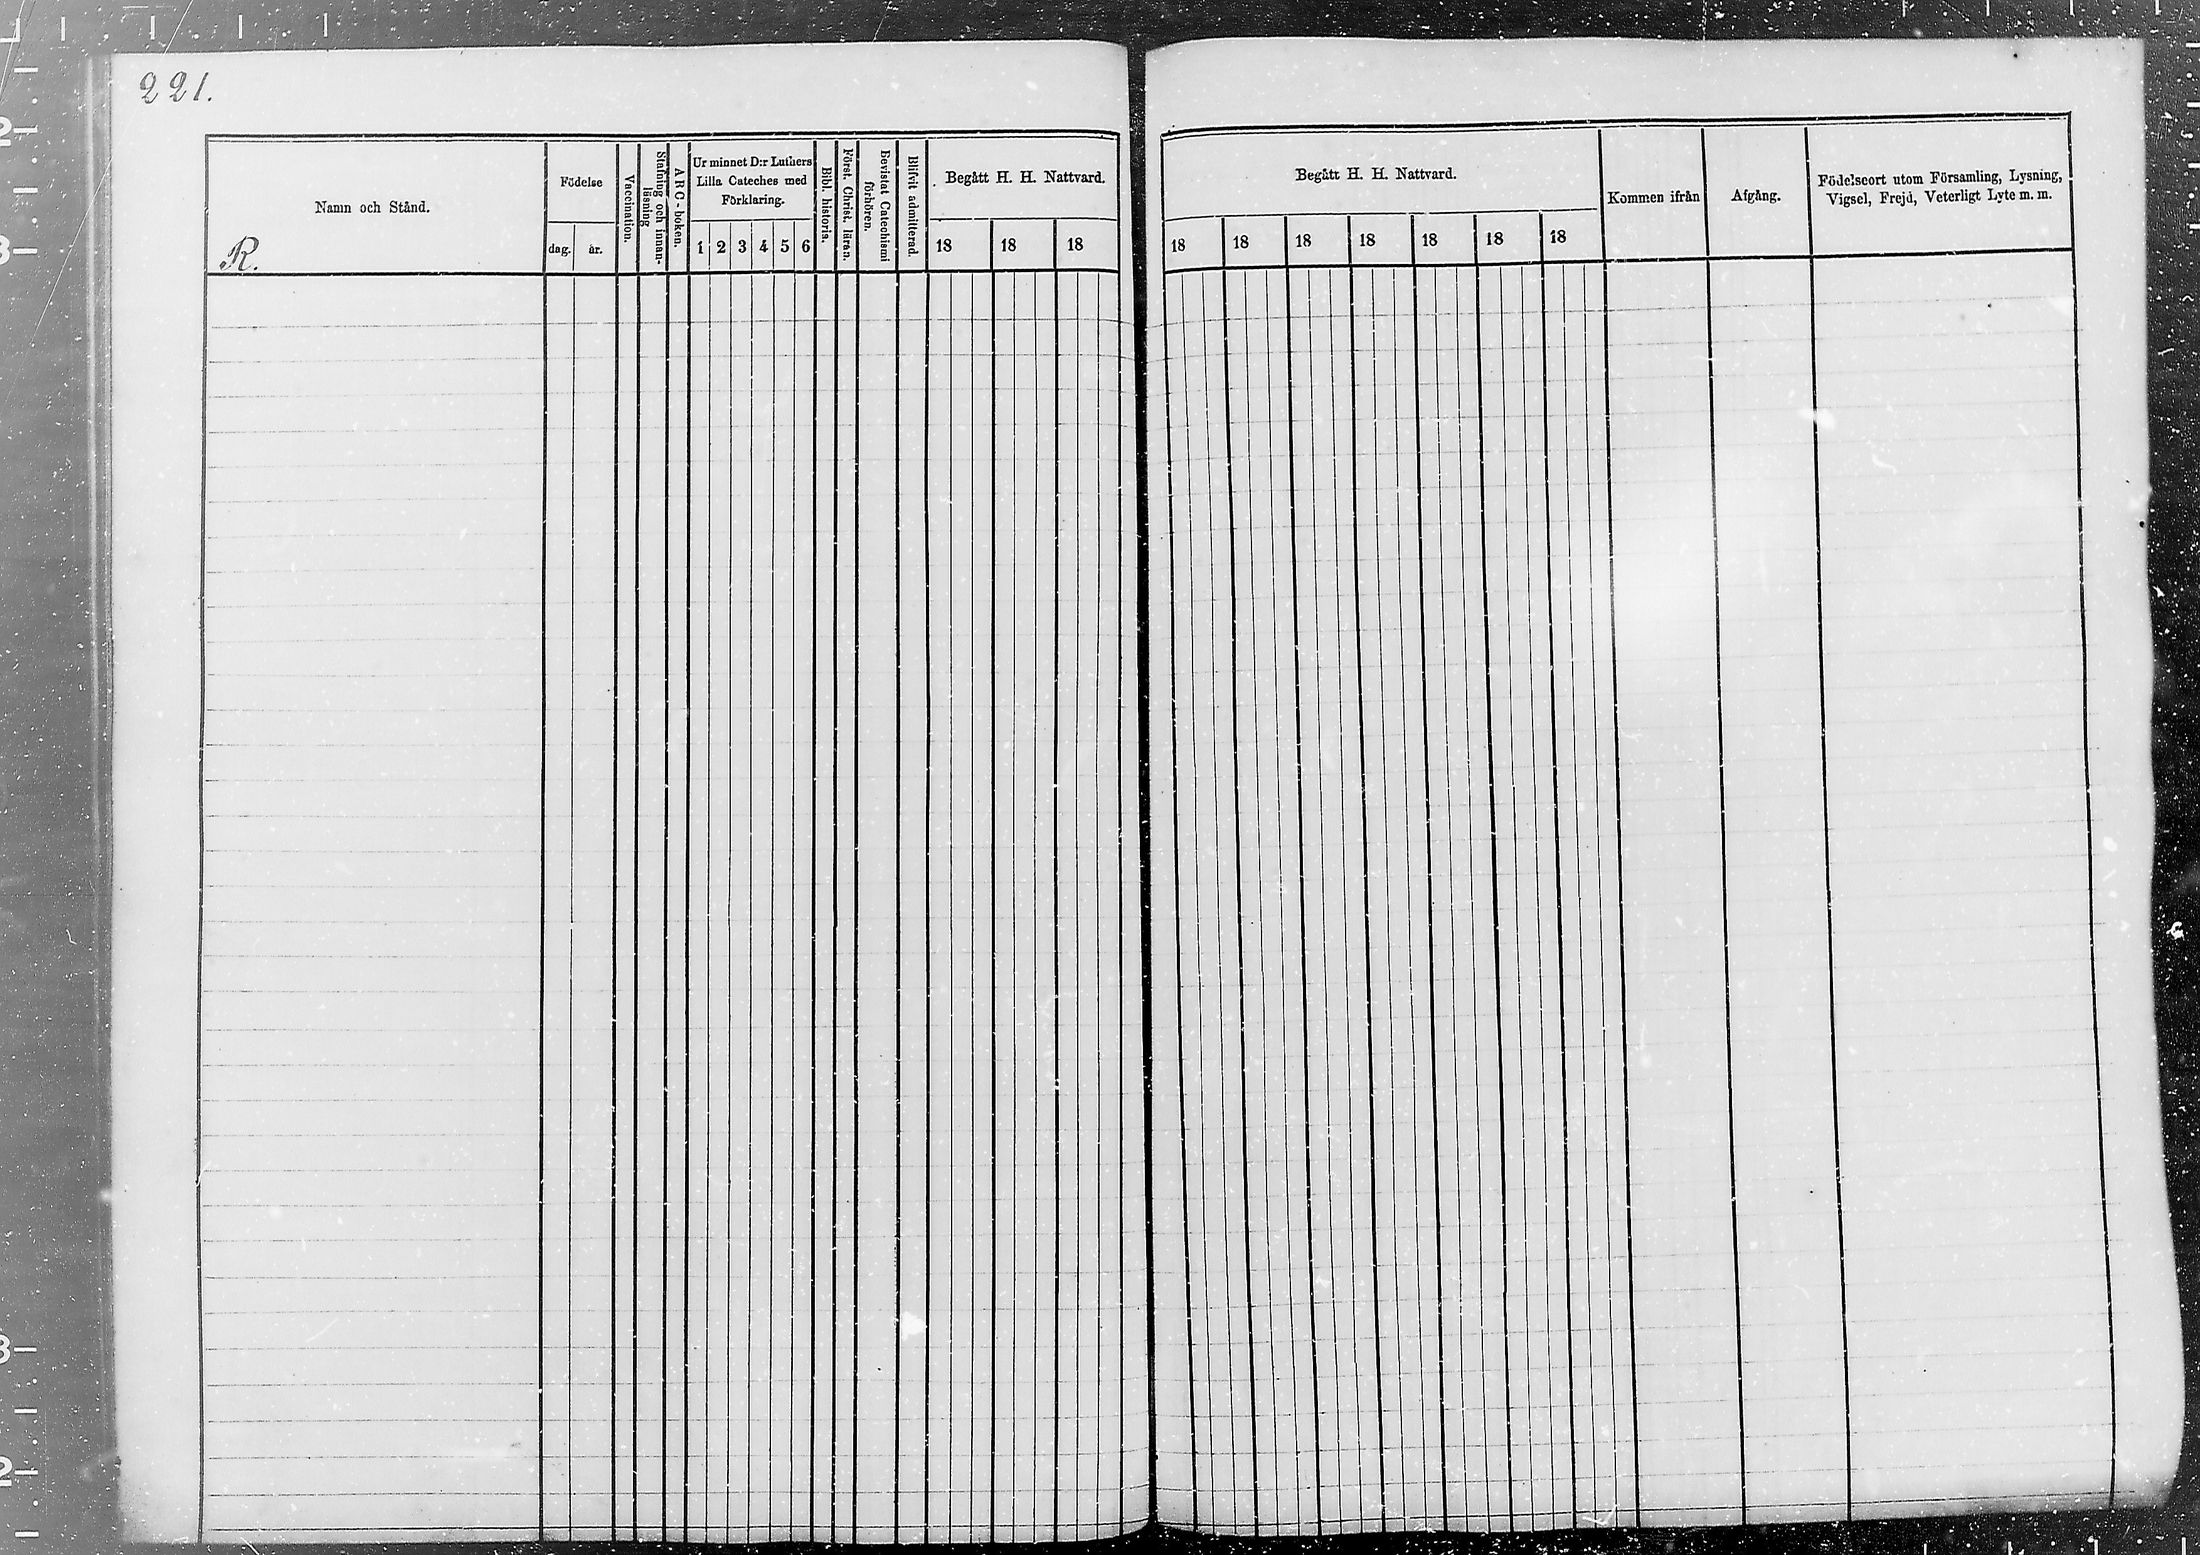 221.
Namn och Stånd.
R.
Födelse
dag.
år.
Vaccination.
Stafning och innan-
läsning
ABC-boken.
Ur minnet D:r Luthers
Lilla Cateches med
Förklaring.
1 2 3 4 5 6
Bibl. historia.
Först. Christ. läran.
Bevistat Catechismi
förhören.
Blifvit admitterad.
Begått H. H. Nattvard.
18 18 18
Begått H. H. Nattvard.
18 18 18 18 18 18 18
Kommen ifrån
Afgång.
Födelseort utom Församling, Lysning,
Vigsel, Frejd, Veterligt Lyte m. m.